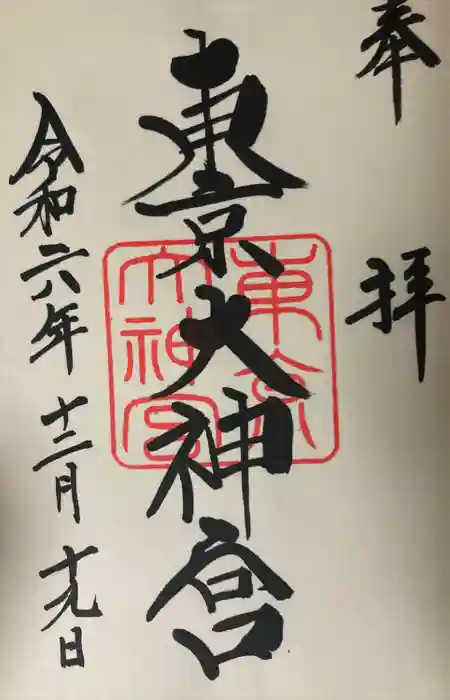 奉拝
東京大神宮
東京
大神宮
令和六年十二月十九日